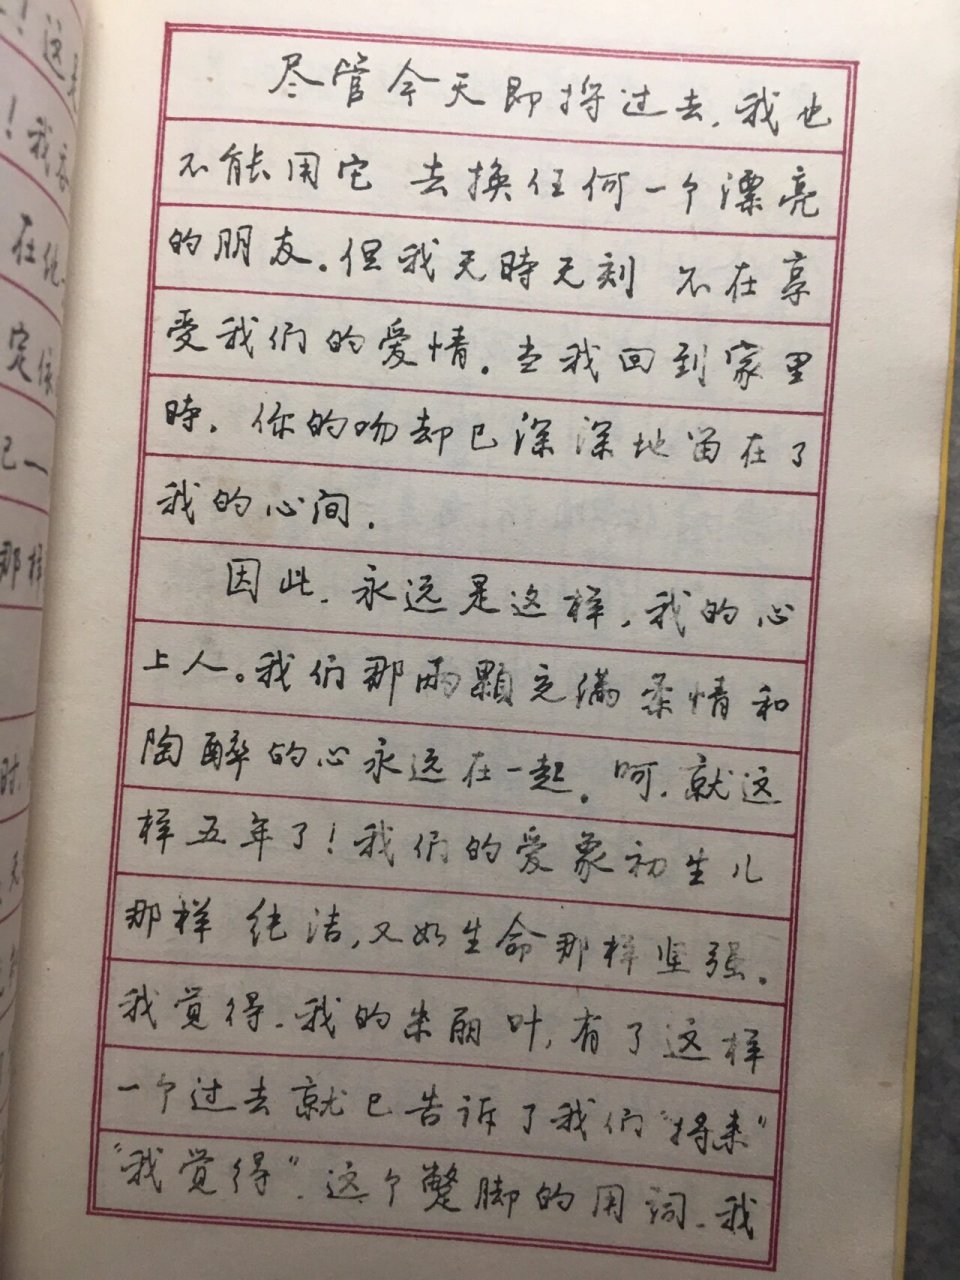 尽管今天即将过去，我也
不能用它 去换任何一个漂亮
的朋友。但我无時无刻 不在享
受我们的爱情。当我回到家里
時，你的吻却已深深地留在了
我的心间．
因此．永远是这样，我的心
上人。我们那兩顆充满柔情和
陶醉的心永远在一起．呵．就这
样五年了！我们的爱象初生儿
那样 纯洁，又如生命那样坚强．
我觉得．我的朱丽叶，有了这样
一个过去就已告诉了我们“将来”
“我觉得”．这个蹩脚的用词．我
！这是
！我
在他
定
已一
那样
时